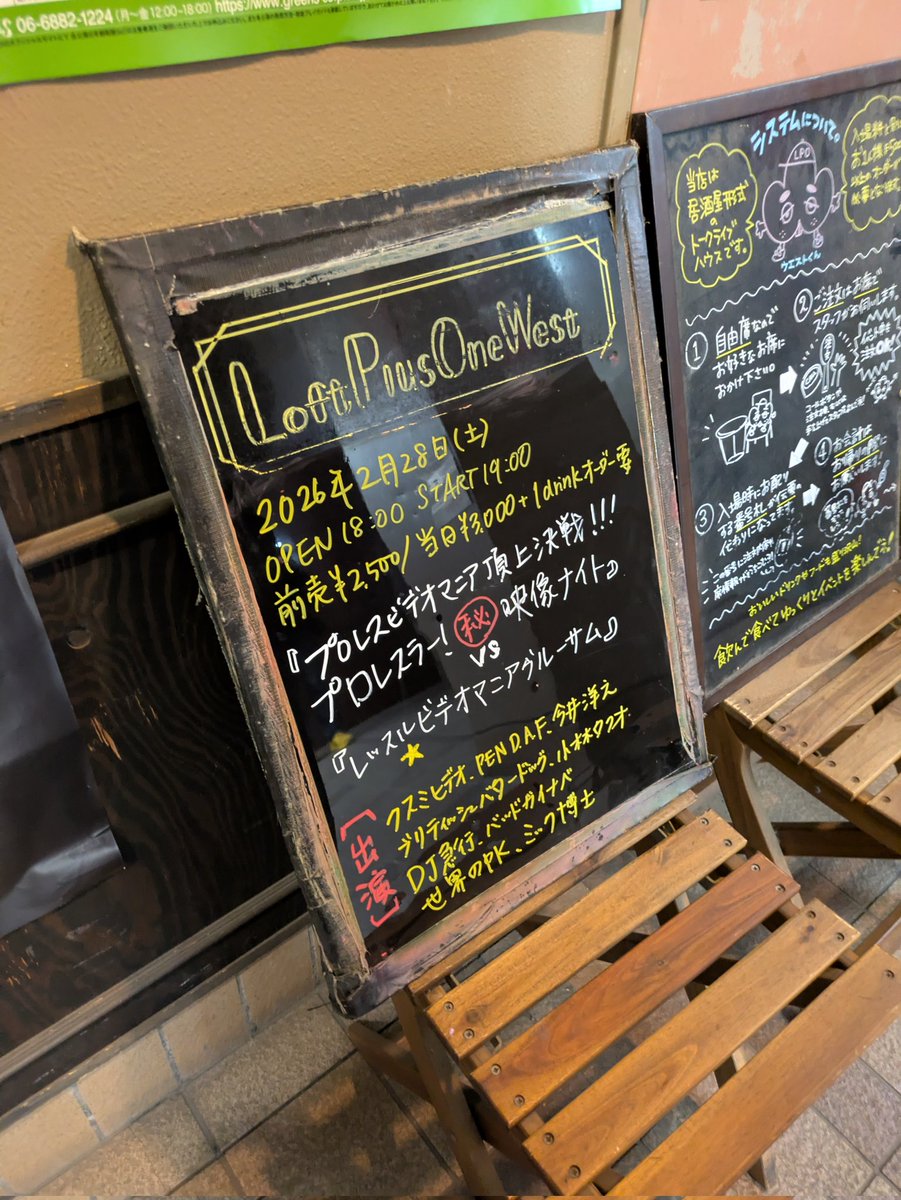 06-6882-1224 (月〜金 12:00~18:00) https://www.greens
Loft PlusOne West
2026年2月28日(土)
OPEN 18:00 START 19:00
前売¥2,500/当日¥3,000+1drinkオーダー要
『プロレスビデオマニア頂上決戦!!!
プロレスラー!㊙映像ナイト』
vs
『レッスルビデオマニアグルーサム』
★
[出演]
クスミヒデオ、PEN D.A.F、今井洋之
ブリティッシュバタードッグ、小林タクオ
DJ急行、バッドガイナベ
世界のPK、ミック博士
システムについて。
当店は
居酒屋形式
の
トークライブ
ハウスです。
LPO
ウエストくん
入場料と別
お1人様¥500
以上のオーダーが
必要となります。
① 自由席なので
お好きなお席に
おかけ下さい。
② ご注文はお席で
スタッフがお伺いします。
イベント中も
注文OK!
③ 入場時にお配り
する番号札が伝票の
代わりになってます。
④ お会計は
お帰りの際に
お願いします。
おいしいドリンクやフードを
飲んで食べてゆっくりとイベントを楽しんでっ!